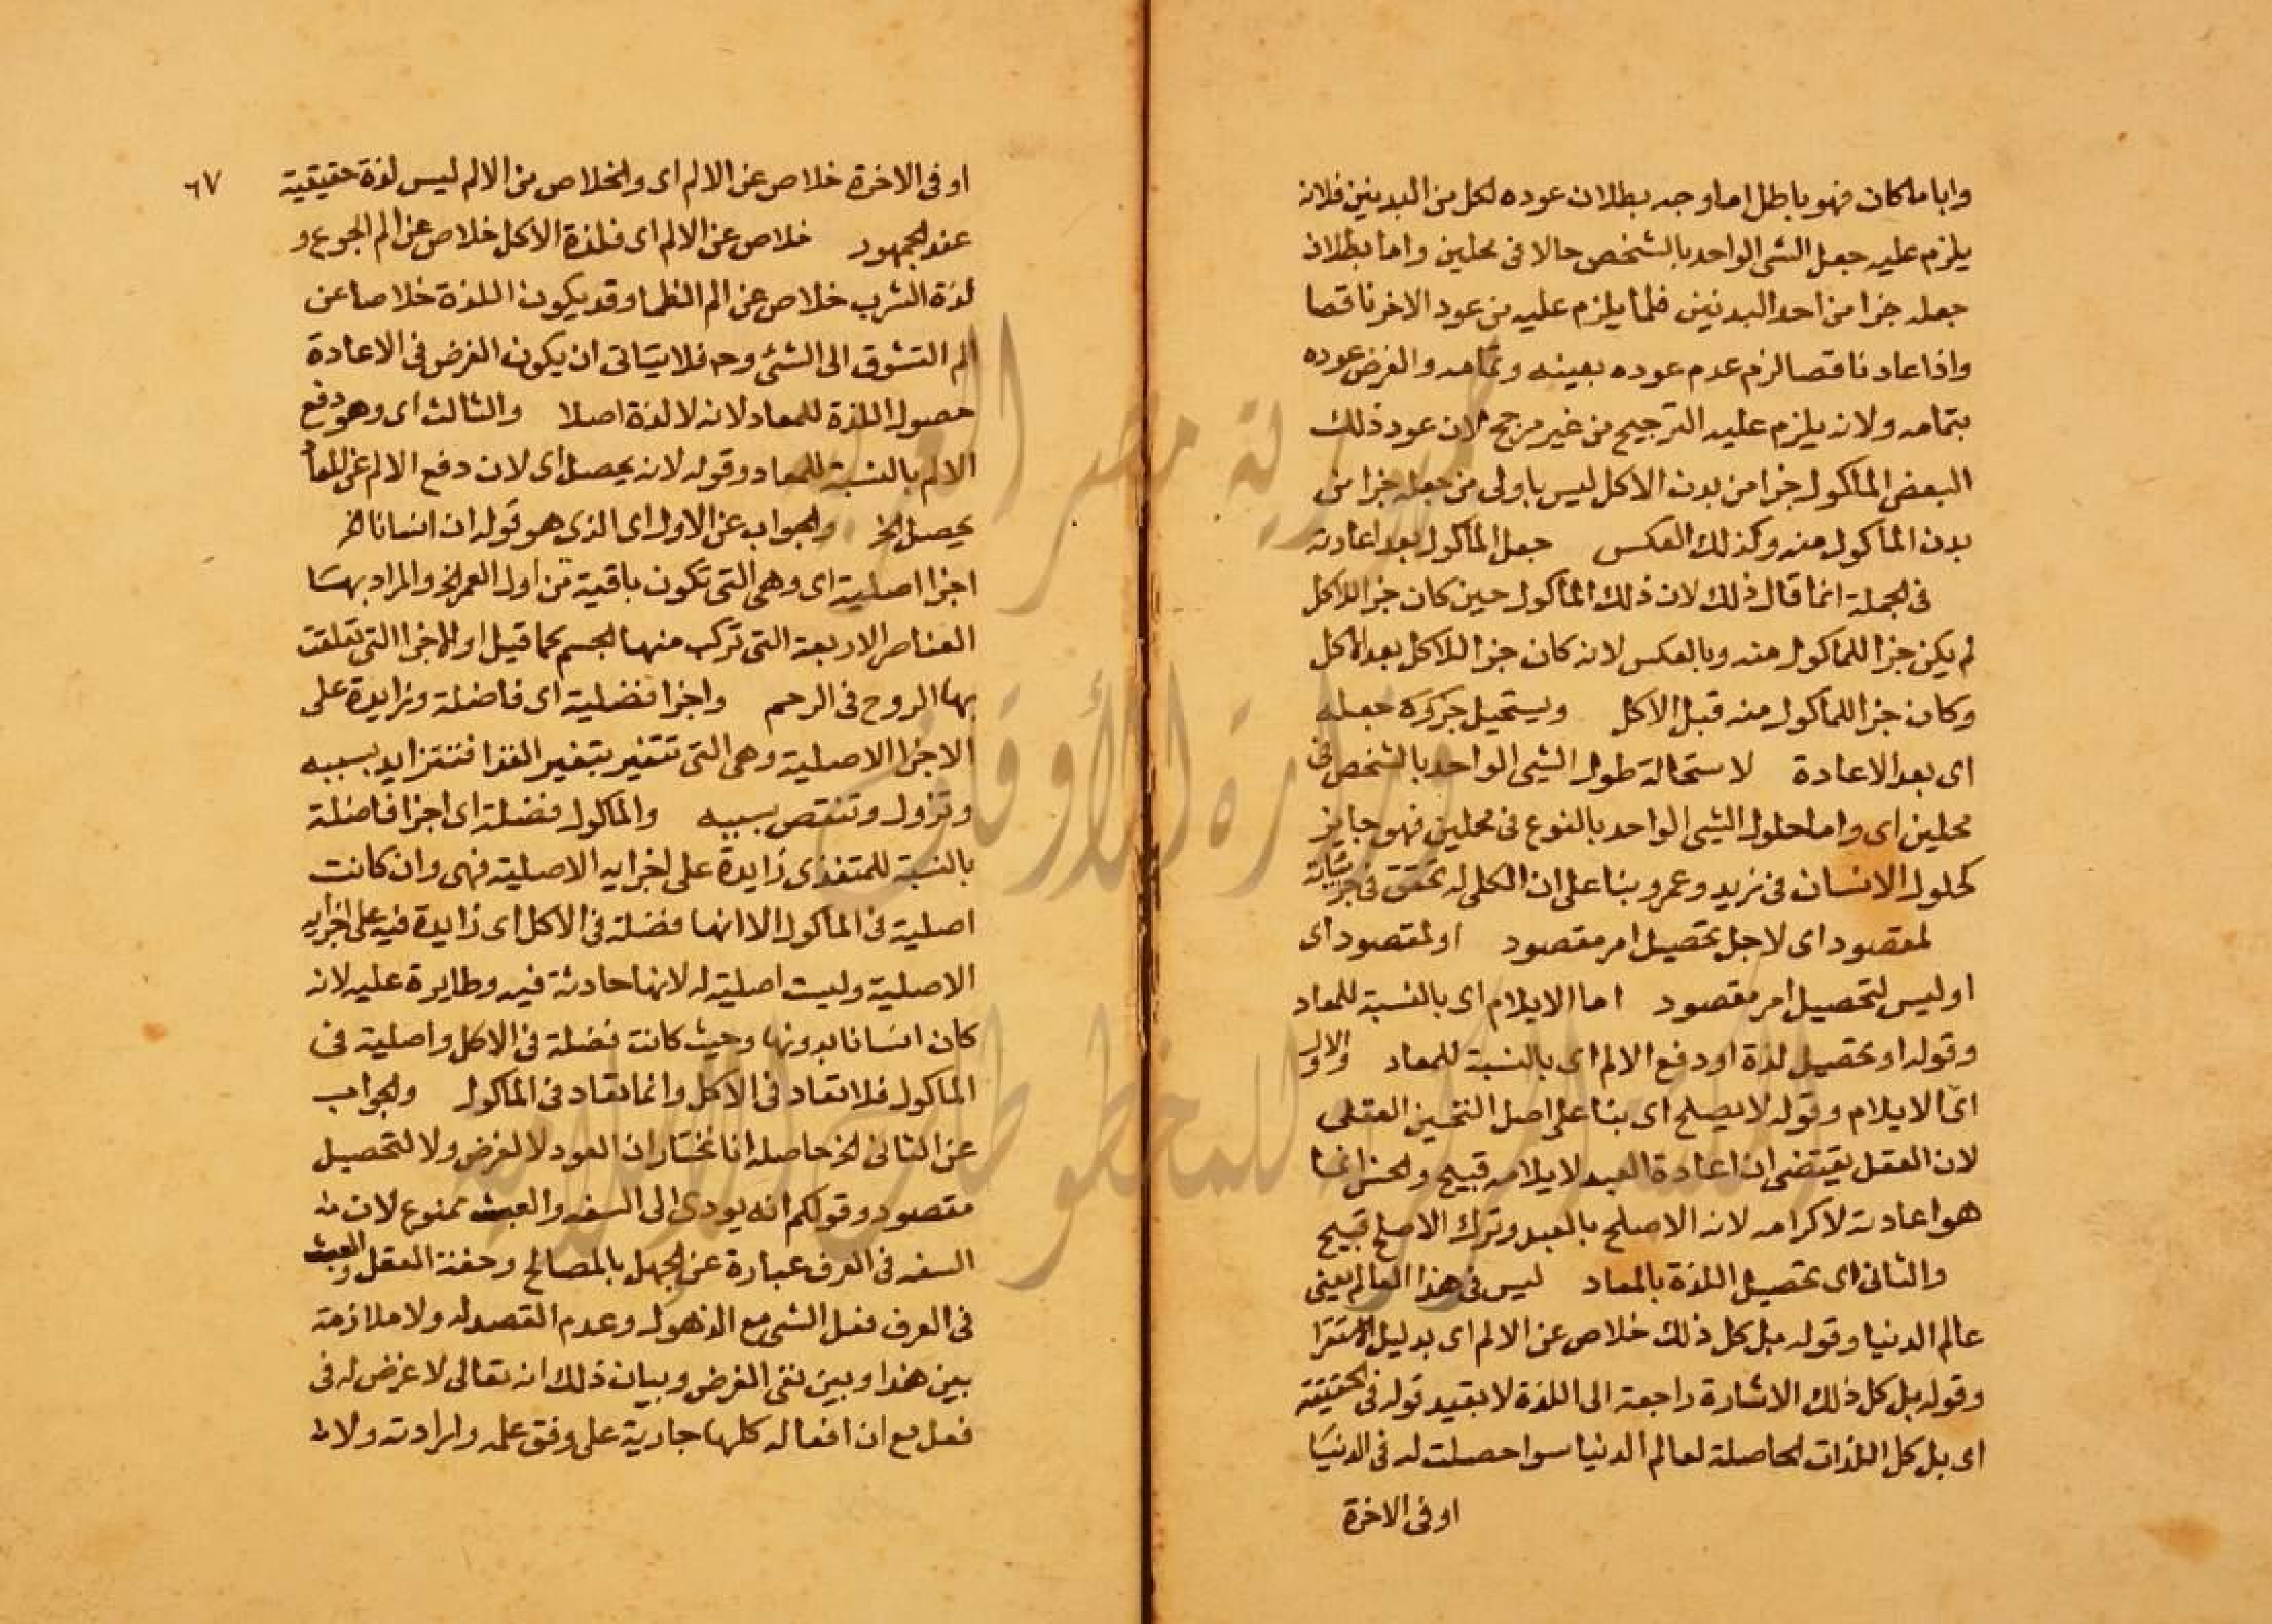 وايا ما كان فهو باطل اما وجه بطلان عوده لكل من البدنين فلانه
يلزم عليه جعل الشى الواحد بالشخص حالا فى محلين واما بطلان
جعله جزا من احد البدنين فلما يلزم عليه من عود الاخر ناقصا
واذا عاد ناقصا لزم عدم عوده بعينه وتمامه والغرض عوده
بتمامه ولانه يلزم عليه الترجيح من غير مرجح لان عود ذلك
البعض الماكول جزا من بدن الاكل ليس باولى من جعله جزا من
بدن الماكول منه وكذلك العكس جعل الماكول بعد اعادته
فى الجملة انما قال ذلك لان ذلك الماكول حين كان جزا للاكل
لم يكن جزا للماكول منه وبالعكس لانه كان جزا للاكل بعد الاكل
وكان جزا للماكول منه قبل الاكل ويستحيل جعله
اى بعد الاعادة لاستحالة حلول الشيى الواحد بالشخص فى
محلين اى واما حلول الشيى الواحد بالنوع فى محلين فهو جايز
كحلول الانسان فى زيد وعمرو بنا على ان الكلى له تحقق فى جزئياته
لمقصود اى لاجل تحصيل امر مقصود او لمقصود اى
او ليس لتحصيل امر مقصود اما الايلام اى بالنسبة للمعاد
وقوله او تحصيل لذة او دفع الالم اى بالنسبة للمعاد والاول
اى الايلام وقوله لا يصلح اى بنا على اصل التحسين العقلى
لان العقل يقتضى ان اعادة العبد لايلامه قبيح والحسن انما
هو اعادته لاكرامه لانه الاصلح بالعبد وترك الاصلح قبيح
والثانى اى تحصيل اللذة بالمعاد ليس فى هذا العالم يعنى
عالم الدنيا وقوله بل كل ذلك خلاص عن الالم اى بدليل الاستقرا
وقوله بل كل ذلك الاشارة راجعة الى اللذة لا بقيد قوله فى الحقيقة
اى بل كل اللذات الحاصلة لعالم الدنيا سوا حصلت له فى الدنيا
او فى الاخرة
٦٧
او فى الاخرة خلاص عن الالم اى والخلاص من الالم ليس لذة حقيقية
عند الجمهور خلاص عن الالم اى فلذة الاكل خلاص عن الم الجوع و
لذة الشرب خلاص عن الم الظما وقد يكون اللذة خلاصا عن
الم التشوق الى الشئ وح فلا يتاتى ان يكون الغرض فى الاعادة
حصول اللذة للمعاد لانه لا لذة اصلا والثالث اى وهو دفع
الالم بالنسبة للمعاد وقوله لانه يحصل اى لان دفع الالم عن المعا
يحصل الخ والجواب عن الاول اى الذى هو قوله ان انسانا الخ
اجزا اصلية اى وهى التى تكون باقية من اول العمر الخ والمراد بها
العناصر الاربعة التى تركب منها الجسم كما قيل او الاجزا التى تعلقت
بها الروح فى الرحم واجزا فضلية اى فاضلة وزايدة على
الاجزا الاصلية وهى التى تتغير بتغير الغذا فتتزايد بسببه
وتزول وتنقص بسببه والماكول فضلة اى اجزا فاضلة
بالنسبة للمتغذى زايدة على اجزايه الاصلية فهى وان كانت
اصلية فى الماكول الا انها فضلة فى الاكل اى زايدة فيه على اجزايه
الاصلية وليست اصلية له لانها حادثة فيه وطايرة عليه لانه
كان انسانا بدونها وحيث كانت فضلة فى الاكل واصلية فى
الماكول فلا تعاد فى الاكل وانما تعاد فى الماكول والجواب
عن الثانى الخ حاصله انا نختار ان العود لا لغرض ولا لتحصيل
مقصود وقولكم انه يودى الى السفه والعبث ممنوع لان
السفه فى العرف عبارة عن الجهل بالمصالح وخفة العقل والعبث
فى العرف فعل الشى مع الذهول وعدم القصد له ولا ملازمة
بين هذا وبين نفى الغرض وبيان ذلك انه تعالى لا غرض له فى
فعل مع ان افعاله كلها جارية على وفق علمه وارادته ولانه